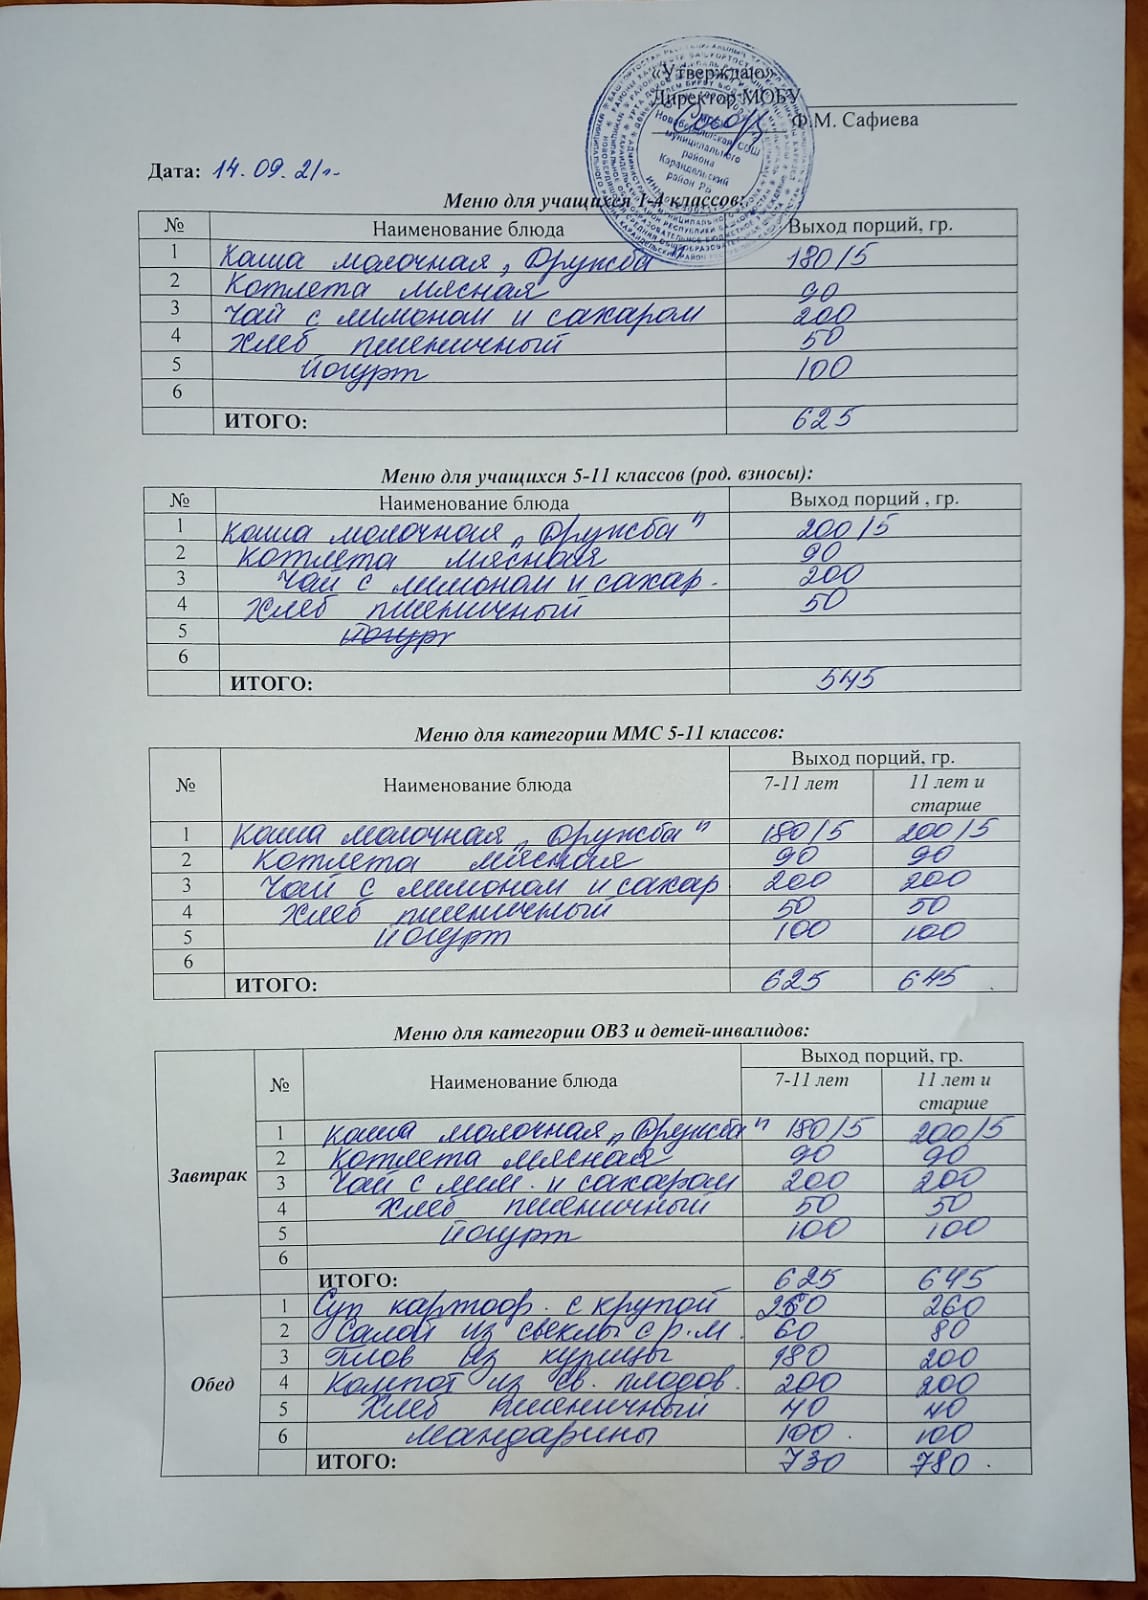 «Утверждаю»
Директор МОБУ
Ф.М. Сафиева
Новобердяшская СОШ
муниципального
района
Караидельский
район РБ
Дата: 14.09.21г.
Меню для учащихся 1-4 классов:
№ Наименование блюда Выход порций, гр.
1 Каша молочная „Дружба" 180/5
2 Котлета мясная 90
3 Чай с лимоном и сахаром 200
4 Хлеб пшеничный 50
5 Йогурт 100
6
ИТОГО: 625
Меню для учащихся 5-11 классов (род. взносы):
№ Наименование блюда Выход порций , гр.
1 Каша молочная „Дружба" 200/5
2 Котлета мясная 90
3 Чай с лимоном и сахар. 200
4 Хлеб пшеничный 50
5 йогурт
6
ИТОГО: 545
Меню для категории ММС 5-11 классов:
№ Наименование блюда Выход порций, гр.
7-11 лет 11 лет и старше
1 Каша молочная „Дружба" 180/5 200/5
2 Котлета мясная 90 90
3 Чай с лимоном и сахар 200 200
4 Хлеб пшеничный 50 50
5 Йогурт 100 100
6
ИТОГО: 625 645
Меню для категории ОВЗ и детей-инвалидов:
№ Наименование блюда Выход порций, гр.
7-11 лет 11 лет и старше
Завтрак
1 Каша молочная „Дружба" 180/5 200/5
2 Котлета мясная 90 90
3 Чай с лим. и сахаром 200 200
4 Хлеб пшеничный 50 50
5 Йогурт 100 100
6
ИТОГО: 625 645
Обед
1 Суп картоф. с крупой 260
2 Салат из свеклы с р.м. 60 80
3 Плов из курицы 180 200
4 Компот из св. плодов. 200 200
5 Хлеб пшеничный 40 40
6 мандарины 100 100
ИТОГО: 730 780